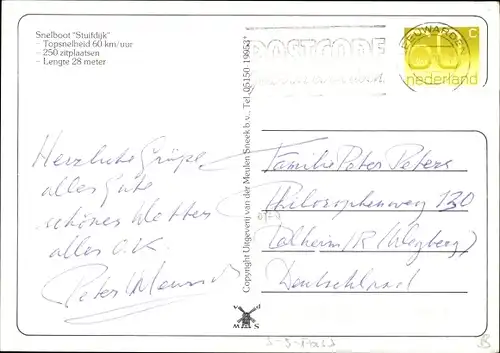 Snelboot "Stuifdijk"
- Topsnelheid 60 km/uur
- 250 zitplaatsen
- Lengte 28 meter
Herzliche Grüße
alles Gute
schönes Wetter
alles O.K.
Peter
Copyright Uitgeverij van der Meulen Sneek b.v. Tel. 05150-19963*
POSTCODE
LEEUWARDEN
60 c
nederland
Familie Peter Peters
Philosophenweg 130
Dalheim/R (Wegberg)
Deutschland
v d
M S